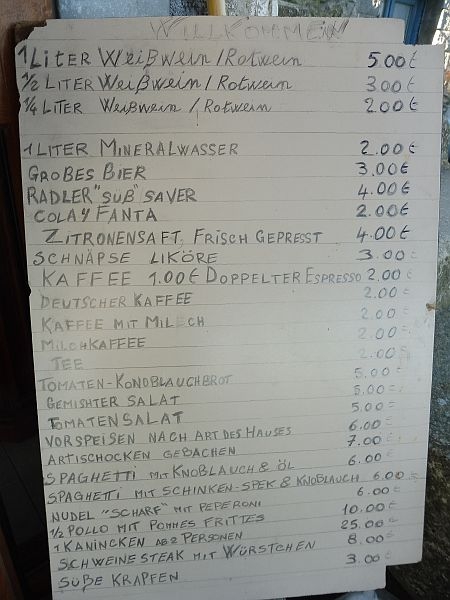 WILLKOMMEN
1 LITER Weißwein / Rotwein 5.00€
1/2 LITER Weißwein / Rotwein 3.00€
1/4 LITER Weißwein / Rotwein 2.00€
1 LITER MINERALWASSER 2.00€
GROßES BIER 3.00€
RADLER "SÜß" SAVER 4.00€
COLA Y FANTA 2.00€
ZITRONENSAFT, FRISCH GEPRESST 4.00€
SCHNÄPSE LIKÖRE 3.00€
KAFFEE 1.00€ DOPPELTER ESPRESSO 2.00€
DEUTSCHER KAFFEE 2.00€
KAFFEE MIT MILECH 2.00€
MILCHKAFFEE 2.00€
TEE 2.00€
TOMATEN-KONOBLAUCHBROT 5.00€
GEMISHTER SALAT 5.00€
TOMATENSALAT 5.00€
VORSPEISEN NACH ART DES HAUSES 6.00€
ARTISCHOCKEN GEBACHEN 7.00€
SPAGHETTI MIT KNOßLAUCH & ÖL 6.00€
SPAGHETTI MIT SCHINKEN-SPEK & KNOßLAUCH 6.00€
NUDEL "SCHARF" MIT PEPERONI 6.00€
1/2 POLLO MIT POMMES FRITTES 10.00€
1 KANINCKEN AB 2 PERSONEN 25.00€
SCHWEINE STEAK MIT WÜRSTCHEN 8.00€
SÜßE KRAPFEN 3.00€